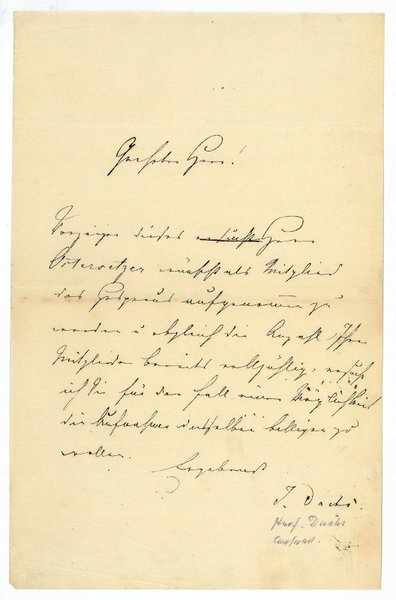 Geehrter Herr!
Vorzeiger dieses ersucht Herr
wünscht als Mitglied
des aufgenommen zu
werden u obgleich die Anzahl Ihrer
Mitglieder bereits vollzählig, ersuche
ich Sie für den Fall einer Möglichkeit
die Aufnahme desselben billigen zu
wollen.
Ergebenst
J. Dachs.
Prof. Dachs